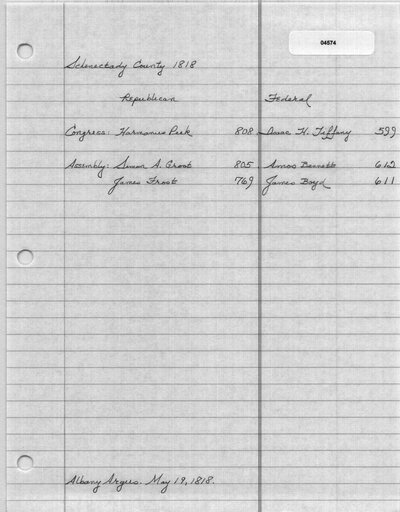 04574
Schenectady County 1818
Republican Federal
Congress: Harmanus Peek 808. Isaac H. Tiffany 599
Assembly: Simon A. Groot 805. Amos Bennett 612
James Frost 769 James Boyd 611
Albany Argus. May 19, 1818.